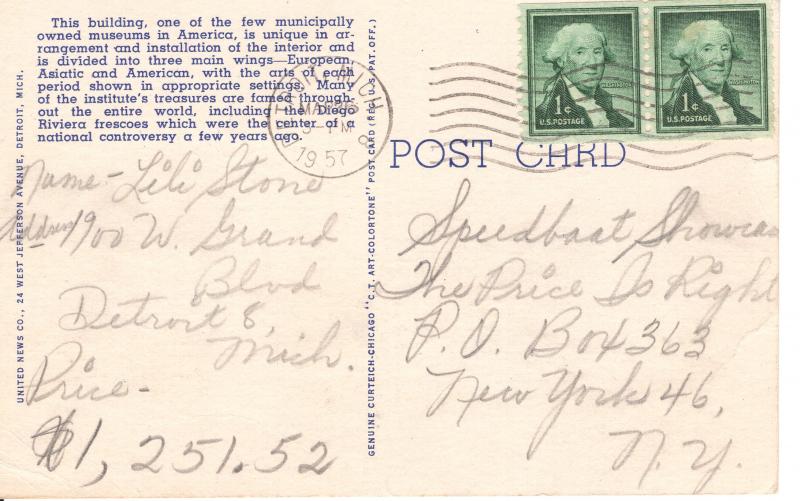 This building, one of the few municipally
owned museums in America, is unique in ar-
rangement and installation of the interior and
is divided into three main wings—European,
Asiatic and American, with the arts of each
period shown in appropriate settings. Many
of the institute's treasures are famed through-
out the entire world, including the Diego
Riviera frescoes which were the center of a
national controversy a few years ago.
UNITED NEWS CO., 24 WEST JEFFERSON AVENUE, DETROIT, MICH.
Name- Lili Stone
Address 1900 W. Grand
Blvd
Detroit 8,
Mich.
Price-
$1,251.52
GENUINE CURTEICH-CHICAGO "C.T. ART-COLORTONE" POST CARD (REG. U.S. PAT. OFF.)
DETROIT, MICH.
MAR
PM
1957
POST CARD
1¢
U.S. POSTAGE
WASHINGTON
1¢
U.S. POSTAGE
WASHINGTON
Speedboat Showcase
The Price Is Right
P.O. Box 363
New York 46,
N.Y.